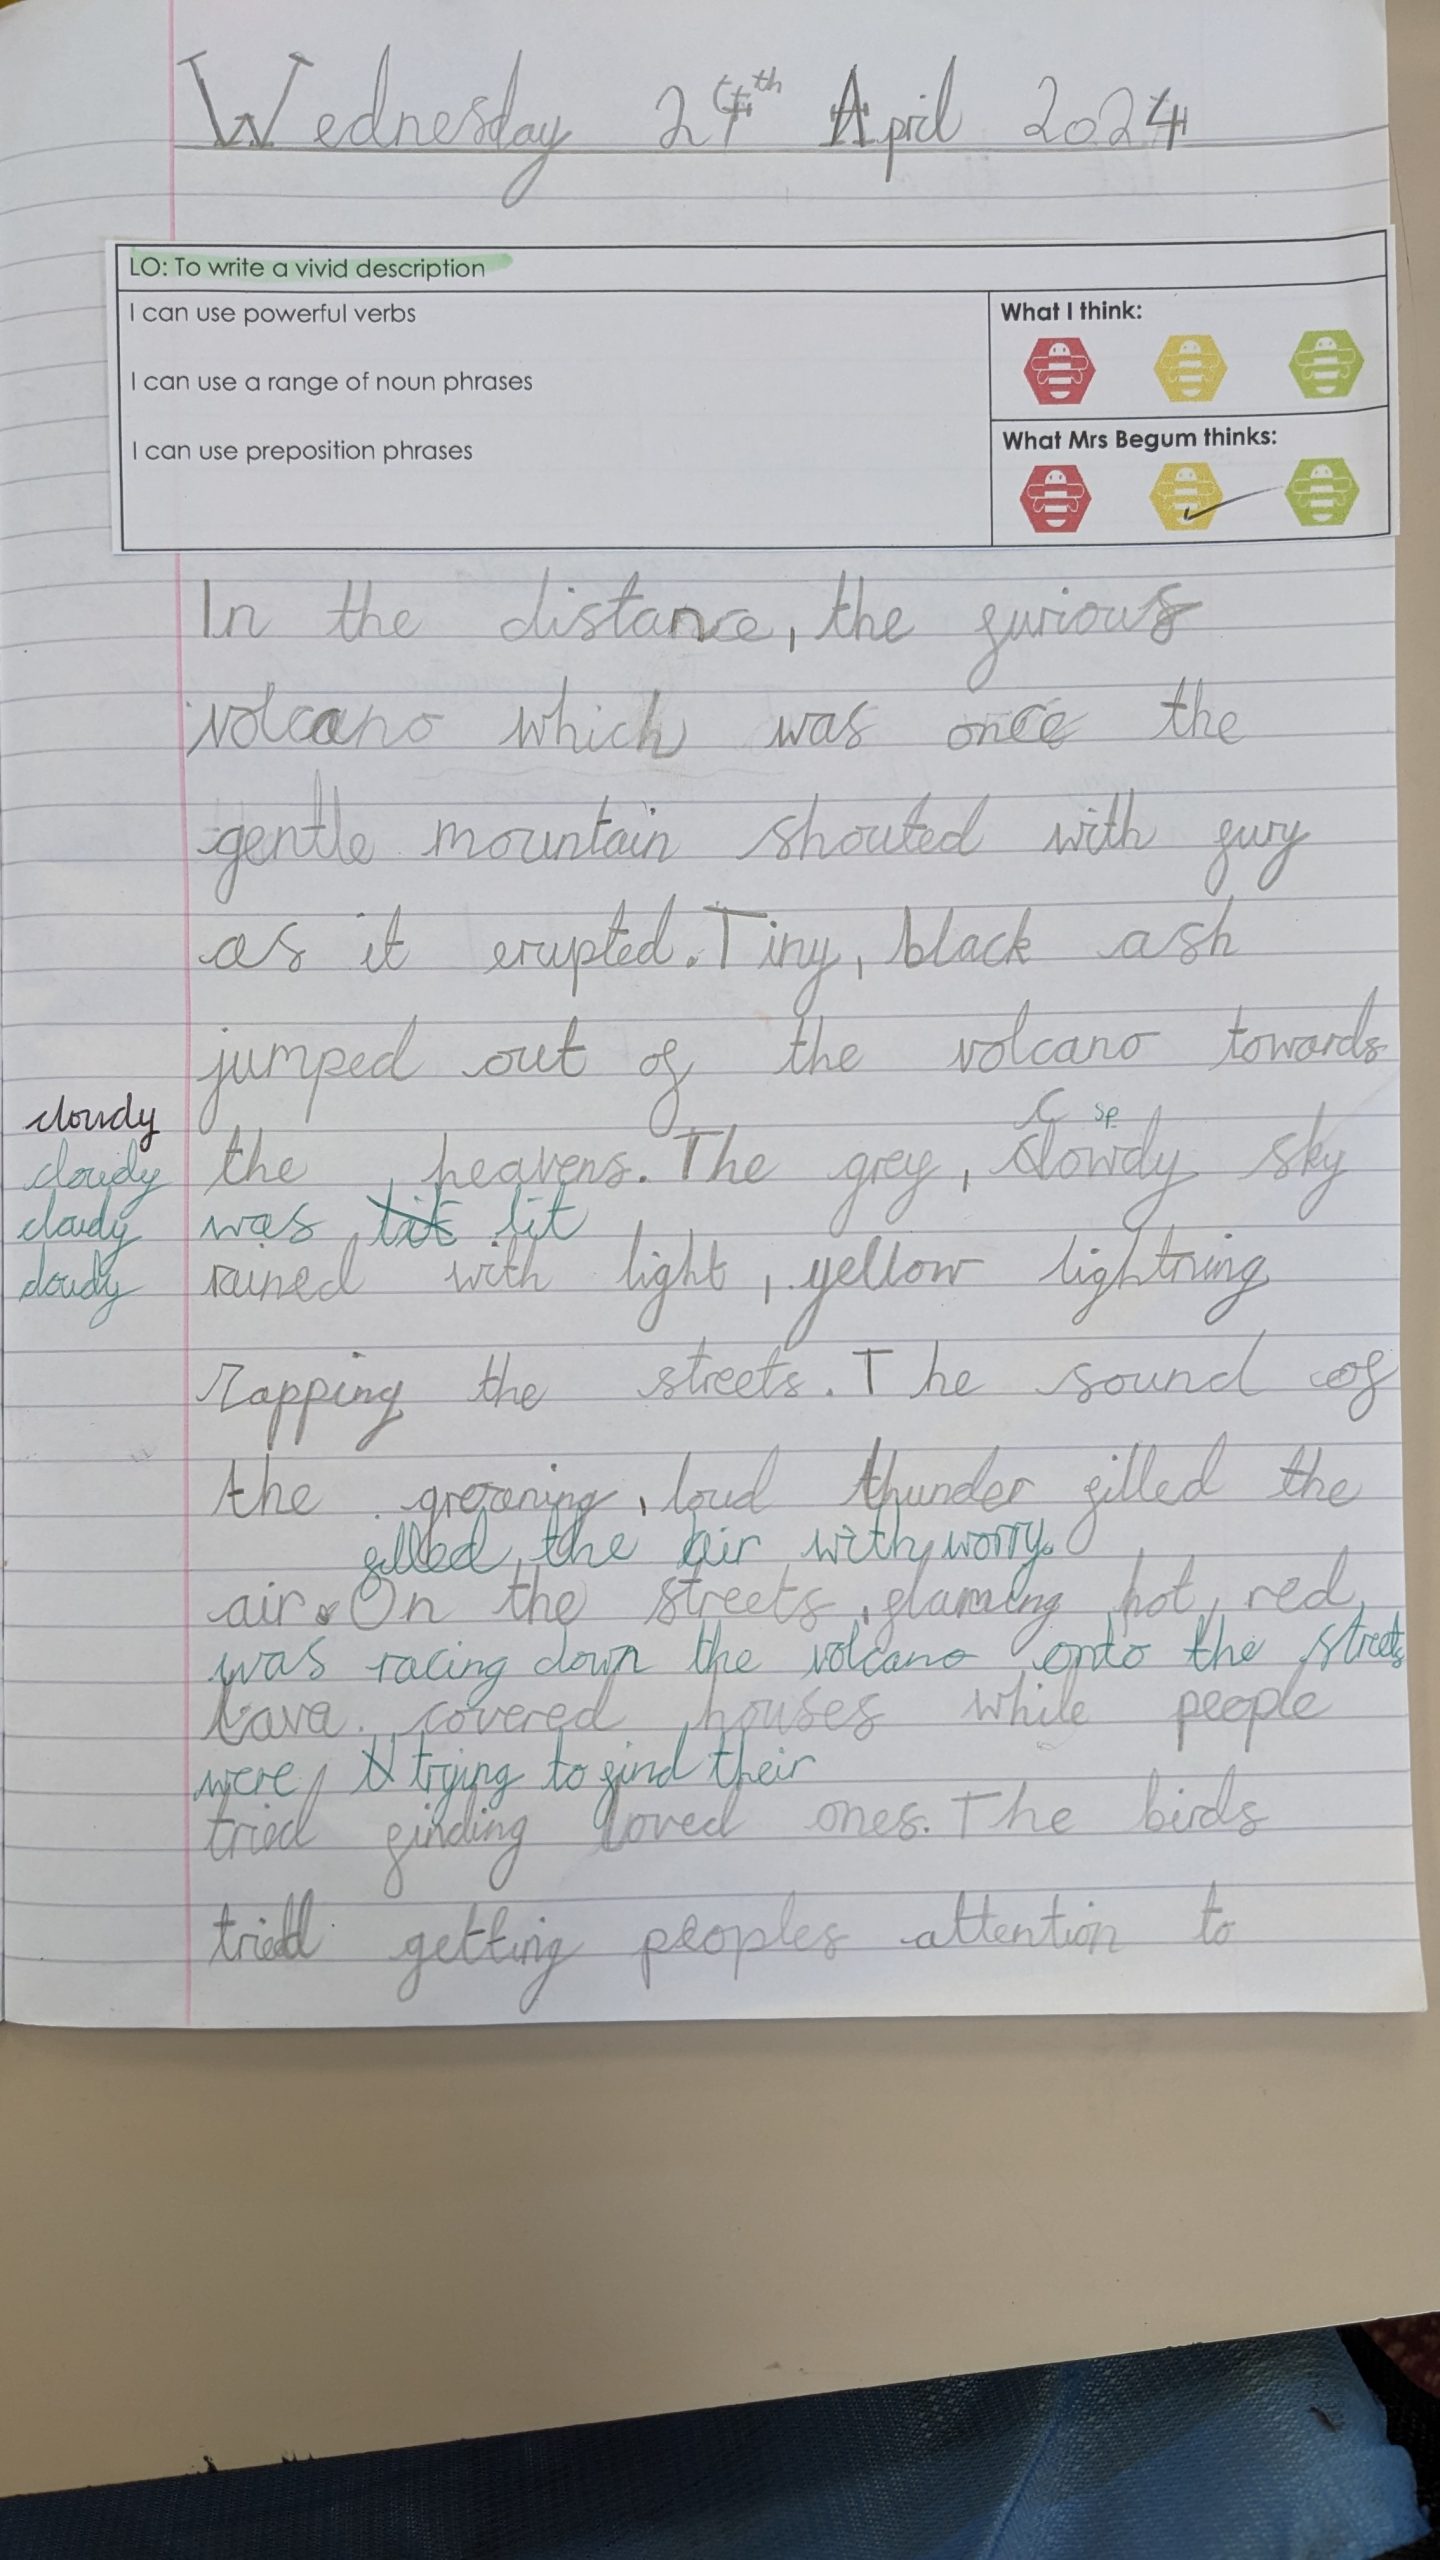 Wednesday 24th April 2024
LO: To write a vivid description
I can use powerful verbs
I can use a range of noun phrases
I can use preposition phrases
What I think:
What Mrs Begum thinks:
In the distance, the furious
volcano which was once the
gentle mountain shouted with fury
as it erupted. Tiny, black ash
jumped out of the volcano towards
cloudy
C sp
cloudy the heavens. The grey, clowdy sky
cloudy was lit
cloudy rained with light, yellow lightning
zapping the streets. The sound of
the groaning, loud thunder filled the
filled the air with worry.
air. On the streets, flaming hot, red,
was racing down the volcano onto the streets
lava. covered houses while people
were trying to find their
tried finding loved ones. The birds
tried getting peoples attention to